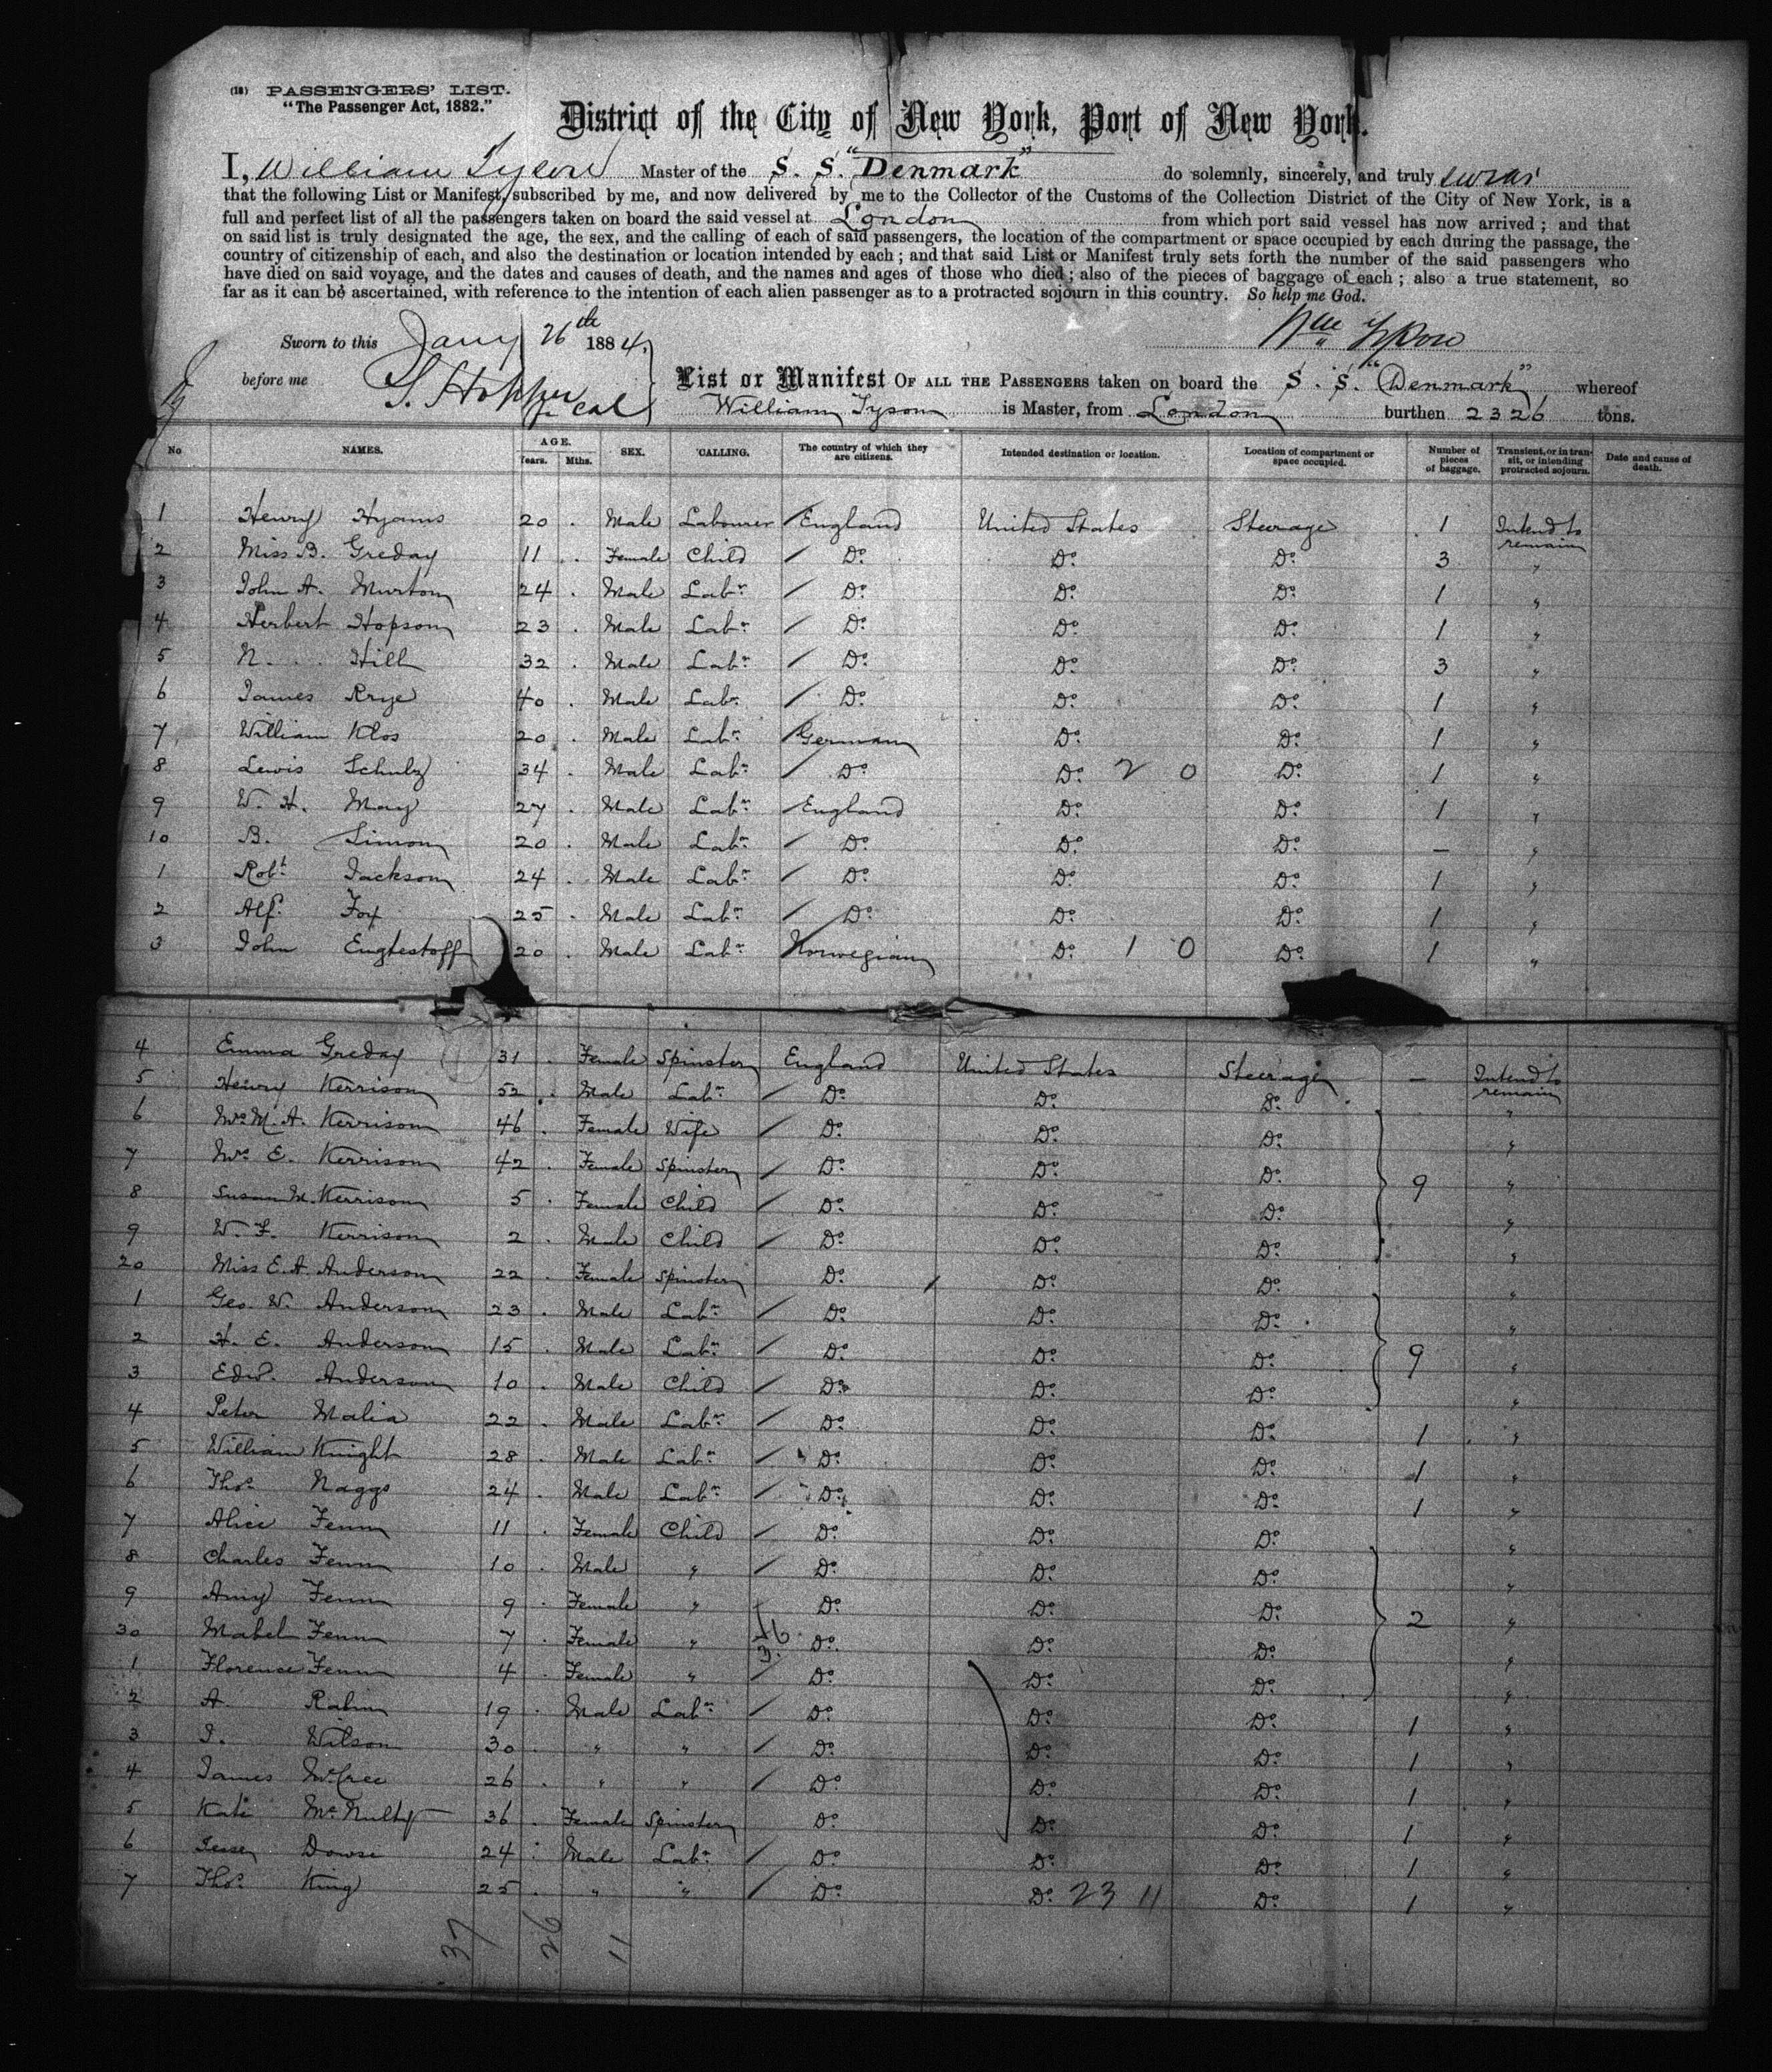 (18) PASSENGERS' LIST.
"The Passenger Act, 1882."
District of the City of New York, Port of New York.
I, William Tyson Master of the S. S. "Denmark" do solemnly, sincerely, and truly swear
that the following List or Manifest, subscribed by me, and now delivered by me to the Collector of the Customs of the Collection District of the City of New York, is a
full and perfect list of all the passengers taken on board the said vessel at London from which port said vessel has now arrived; and that
on said list is truly designated the age, the sex, and the calling of each of said passengers, the location of the compartment or space occupied by each during the passage, the
country of citizenship of each, and also the destination or location intended by each; and that said List or Manifest truly sets forth the number of the said passengers who
have died on said voyage, and the dates and causes of death, and the names and ages of those who died; also of the pieces of baggage of each; also a true statement, so
far as it can be ascertained, with reference to the intention of each alien passenger as to a protracted sojourn in this country. So help me God.
Sworn to this Jany 26th 1884, Wm Tyson
before me List or Manifest OF ALL THE PASSENGERS taken on board the S. S. "Denmark" whereof
William Tyson is Master, from London burthen 2326 tons.
No NAMES. AGE. Years. Mths. SEX. CALLING. The country of which they are citizens. Intended destination or location. Location of compartment or space occupied. Number of pieces of baggage. Transient, or in transit, or intending protracted sojourn. Date and cause of death.
1 Henry Hyams 20 . Male Labourer England United States Steerage 1 Intend to remain
2 Miss B. Greday 11 . Female Child Do. Do. Do. 3 "
3 John A. Murton 24 . Male Labr. Do. Do. Do. 1 "
4 Herbert Hopson 23 . Male Labr. Do. Do. Do. 1 "
5 N. Hill 32 . Male Labr. Do. Do. Do. 3 "
6 James Krye 40 . Male Labr. Do. Do. Do. 1 "
7 William Klos 20 . Male Labr. German Do. Do. 1 "
8 Lewis Schulz 34 . Male Labr. Do. Do. 2 0 Do. 1 "
9 W. H. May 27 . Male Labr. England Do. Do. 1 "
10 B. Simon 20 . Male Labr. Do. Do. Do. — "
1 Robt. Jackson 24 . Male Labr. Do. Do. Do. 1 "
2 Alf. Fox 25 . Male Labr. Do. Do. Do. 1 "
3 John Engtestoff 20 . Male Labr. Norwegian Do. 1 0 Do. 1 "
4 Emma Greday 31 . Female Spinster England United States Steerage — Intend to remain
5 Henry Kerrison 52 . Male Labr. Do. Do. Do. "
6 Mrs M. A. Kerrison 46 . Female Wife Do. Do. Do. "
7 Mrs E. Kerrison 42 . Female Spinster Do. Do. Do. 9 "
8 Susan M. Kerrison 5 . Female Child Do. Do. Do. "
9 W. F. Kerrison 2 . Male Child Do. Do. Do. "
20 Miss E. A. Anderson 22 . Female Spinster Do. Do. Do. "
1 Geo. W. Anderson 23 . Male Labr. Do. Do. Do. "
2 H. E. Anderson 15 . Male Labr. Do. Do. Do. 9 "
3 Edwd. Anderson 10 . Male Child Do. Do. Do. "
4 Peter Malia 22 . Male Labr. Do. Do. Do. 1 "
5 William Knight 28 . Male Labr. Do. Do. Do. 1 "
6 Thos. Naggs 24 . Male Labr. Do. Do. Do. 1 "
7 Alice Fenn 11 . Female Child Do. Do. Do. "
8 Charles Fenn 10 . Male " Do. Do. Do. "
9 Amy Fenn 9 . Female " Do. Do. Do. 2 "
30 Mabel Fenn 7 . Female " Do. Do. Do. "
1 Florence Fenn 4 . Female " Do. Do. Do. "
2 A. Rahn 19 . Male Labr. Do. Do. Do. 1 "
3 J. Wilson 30 . " " Do. Do. Do. 1 "
4 James McCree 26 . " " Do. Do. Do. 1 "
5 Kate McNulty 36 . Female Spinster Do. Do. Do. 1 "
6 Jessey Dowse 24 . Male Labr. Do. Do. Do. 1 "
7 Thos. King 25 . " " Do. Do. 23 11 Do. 1 "
37 26 11